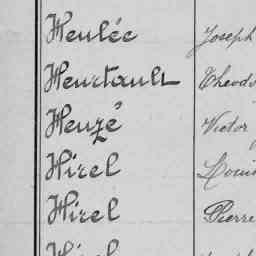 Heulée Joseph
Heurtault Theodo
Heuzé Victor
Hirel Louis
Hirel Pierre
Hirel